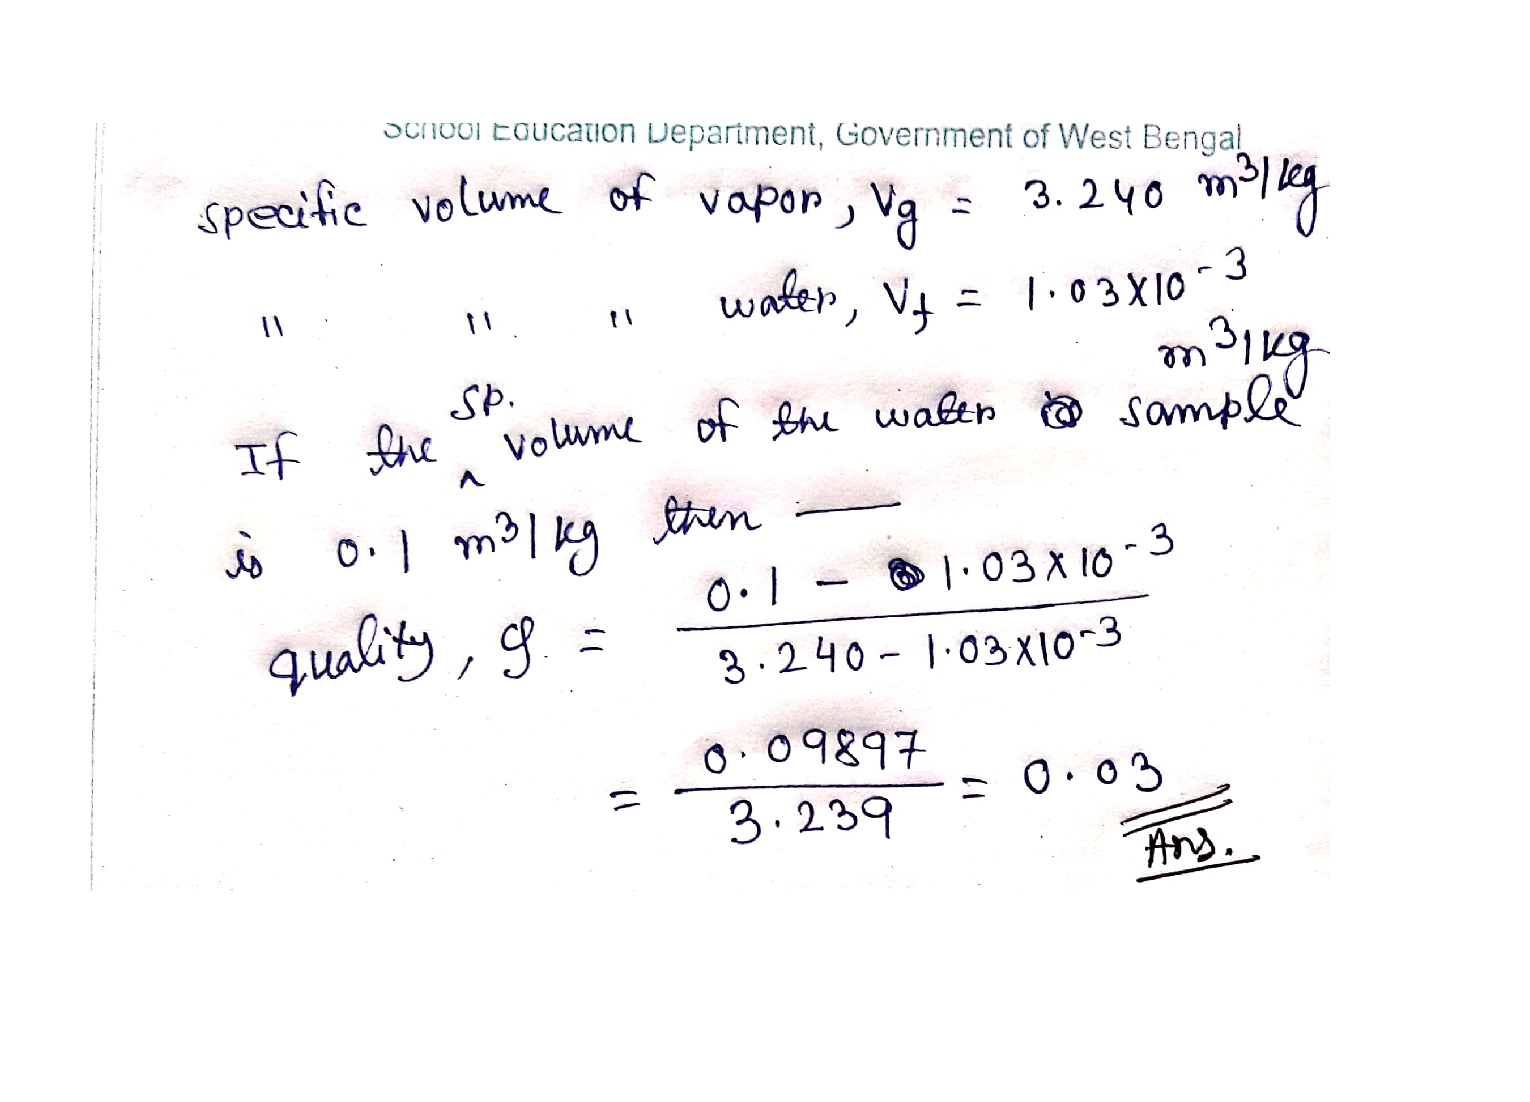 School Education Department, Government of West Bengal
specific volume of vapor, Vg = 3.240 m3/kg
" " " water, Vf = 1.03X10-3
m3/kg
If the sp. volume of the water sample
is 0.1 m3/kg then —
quality, q = 0.1 - 1.03X10-3
3.240 - 1.03X10-3
= 0.09897 = 0.03
3.239
Ans.